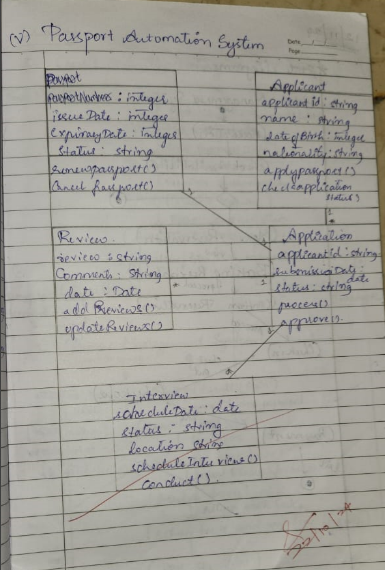 (V) Passport Automation System
Date
Page
Passport
PassportNumber : integer
issueDate : integer
ExpiraryDate : integer
Status : string
renewpassport()
Cancel passport()
Applicant
applicant id : string
name : string
date of Birth : integer
nationality : string
apply passport()
check application
status()
1
Review
review : string
Comments : String
date : Date
add Previews()
update Reviews()
Application
applicantid : string
submissionDate :
date
status : string
process()
approve().
Interview
scheduleDate : date
Status : string
location String
scheduleInterviews()
Conduct().